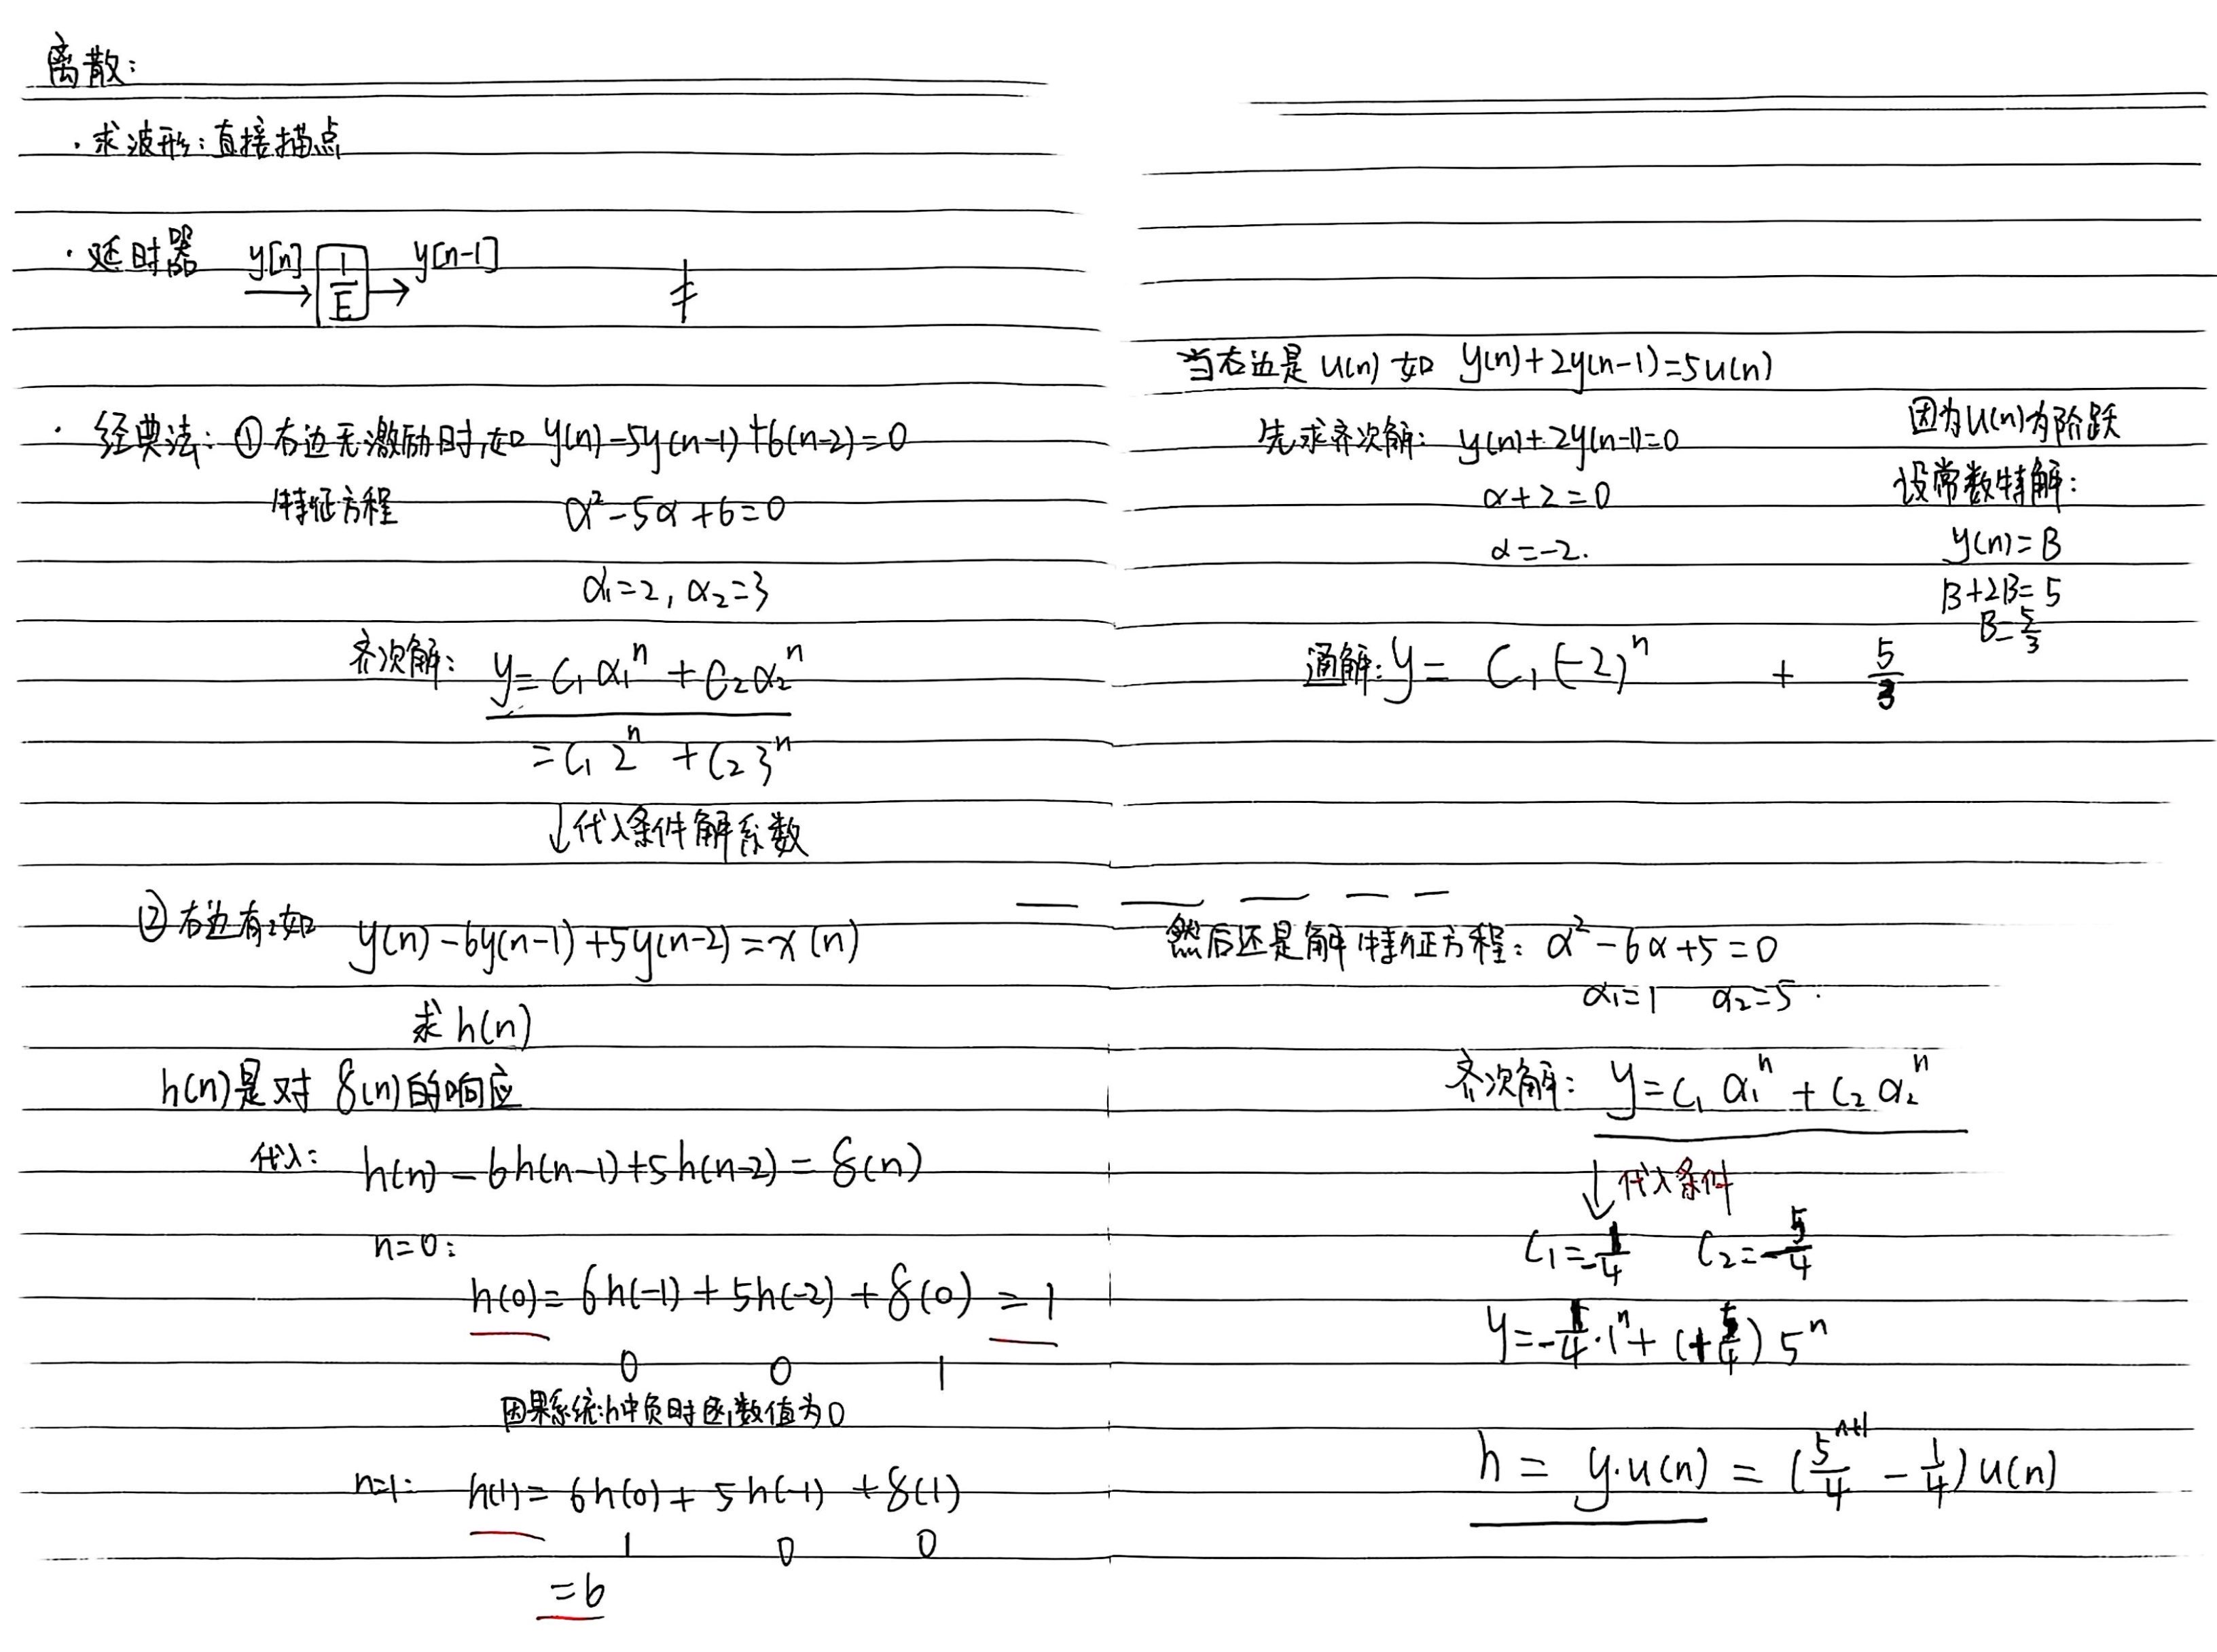 离散:
·求波形:直接描点
·延时器 y[n] 1/E y[n-1]
·经典法:①右边无激励时,如 y(n)-5y(n-1)+6(n-2)=0
特征方程 α²-5α+6=0
α₁=2, α₂=3
齐次解: y=C₁α₁ⁿ+C₂α₂ⁿ
=C₁2ⁿ+C₂3ⁿ
↓代入条件解系数
②右边有,如 y(n)-6y(n-1)+5y(n-2)=x(n)
求h(n)
h(n)是对 δ(n)的响应
代入: h(n)-6h(n-1)+5h(n-2)=δ(n)
n=0:
h(0)=6h(-1)+5h(-2)+δ(0)=1
0 0 1
因果系统:h中负时函数值为0
n=1: h(1)=6h(0)+5h(-1)+δ(1)
1 0 0
=6
当右边是u(n) 如 y(n)+2y(n-1)=5u(n)
先求齐次解: y(n)+2y(n-1)=0
α+2=0
α=-2.
因为u(n)为阶跃
设常数特解:
y(n)=B
B+2B=5
B=5/3
通解:y= C₁(-2)ⁿ + 5/3
然后还是解特征方程: α²-6α+5=0
α₁=1 α₂=5.
齐次解: y=C₁α₁ⁿ+C₂α₂ⁿ
↓代入条件
C₁=-1/4 C₂=5/4
y=-1/4·1ⁿ+(+5/4)5ⁿ
h = y·u(n) = (5ⁿ⁺¹/4 - 1/4)u(n)